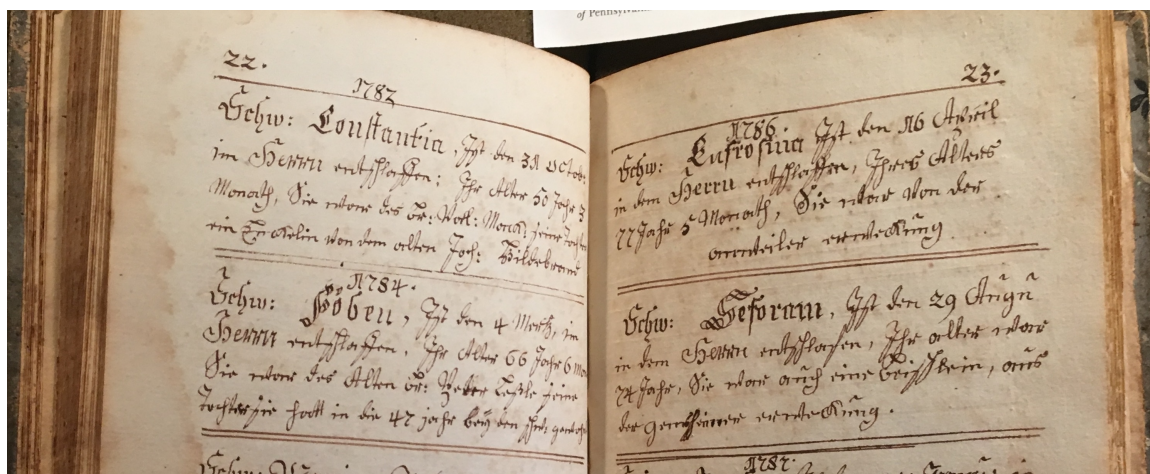 of Pennsylvan
22.
1782
Schw: Constantia, Ist den 31 octob:
im Herrn entschlaffen; Ihr Alter 50 Jahr 3
Monath, Sie war des br: Joch
ein Enckelin von dem alten Joh: Hildebrand
1784.
Schw: Föben, Ist den 4 Mertz, im
Herrn entschlaffen, Ihr Alter 66 Jahr 6 Mo
Sie war des Alten br: Vetter seine
Tochter, sie hatt in die 47 jahr bey den
23.
1786.
Schw: Eufrosina Ist den 16 Apriel
in dem Herrn entschlaffen, Ihres Alters
77 Jahr 5 Monath, Sie war von der
erweckung
Schw: Seforam, Ist den 29 Augu
in dem Herrn entschlafen, Ihr alter war
74 Jahr, Sie war auch eine aus
der erweckung.
1787.
Schw: